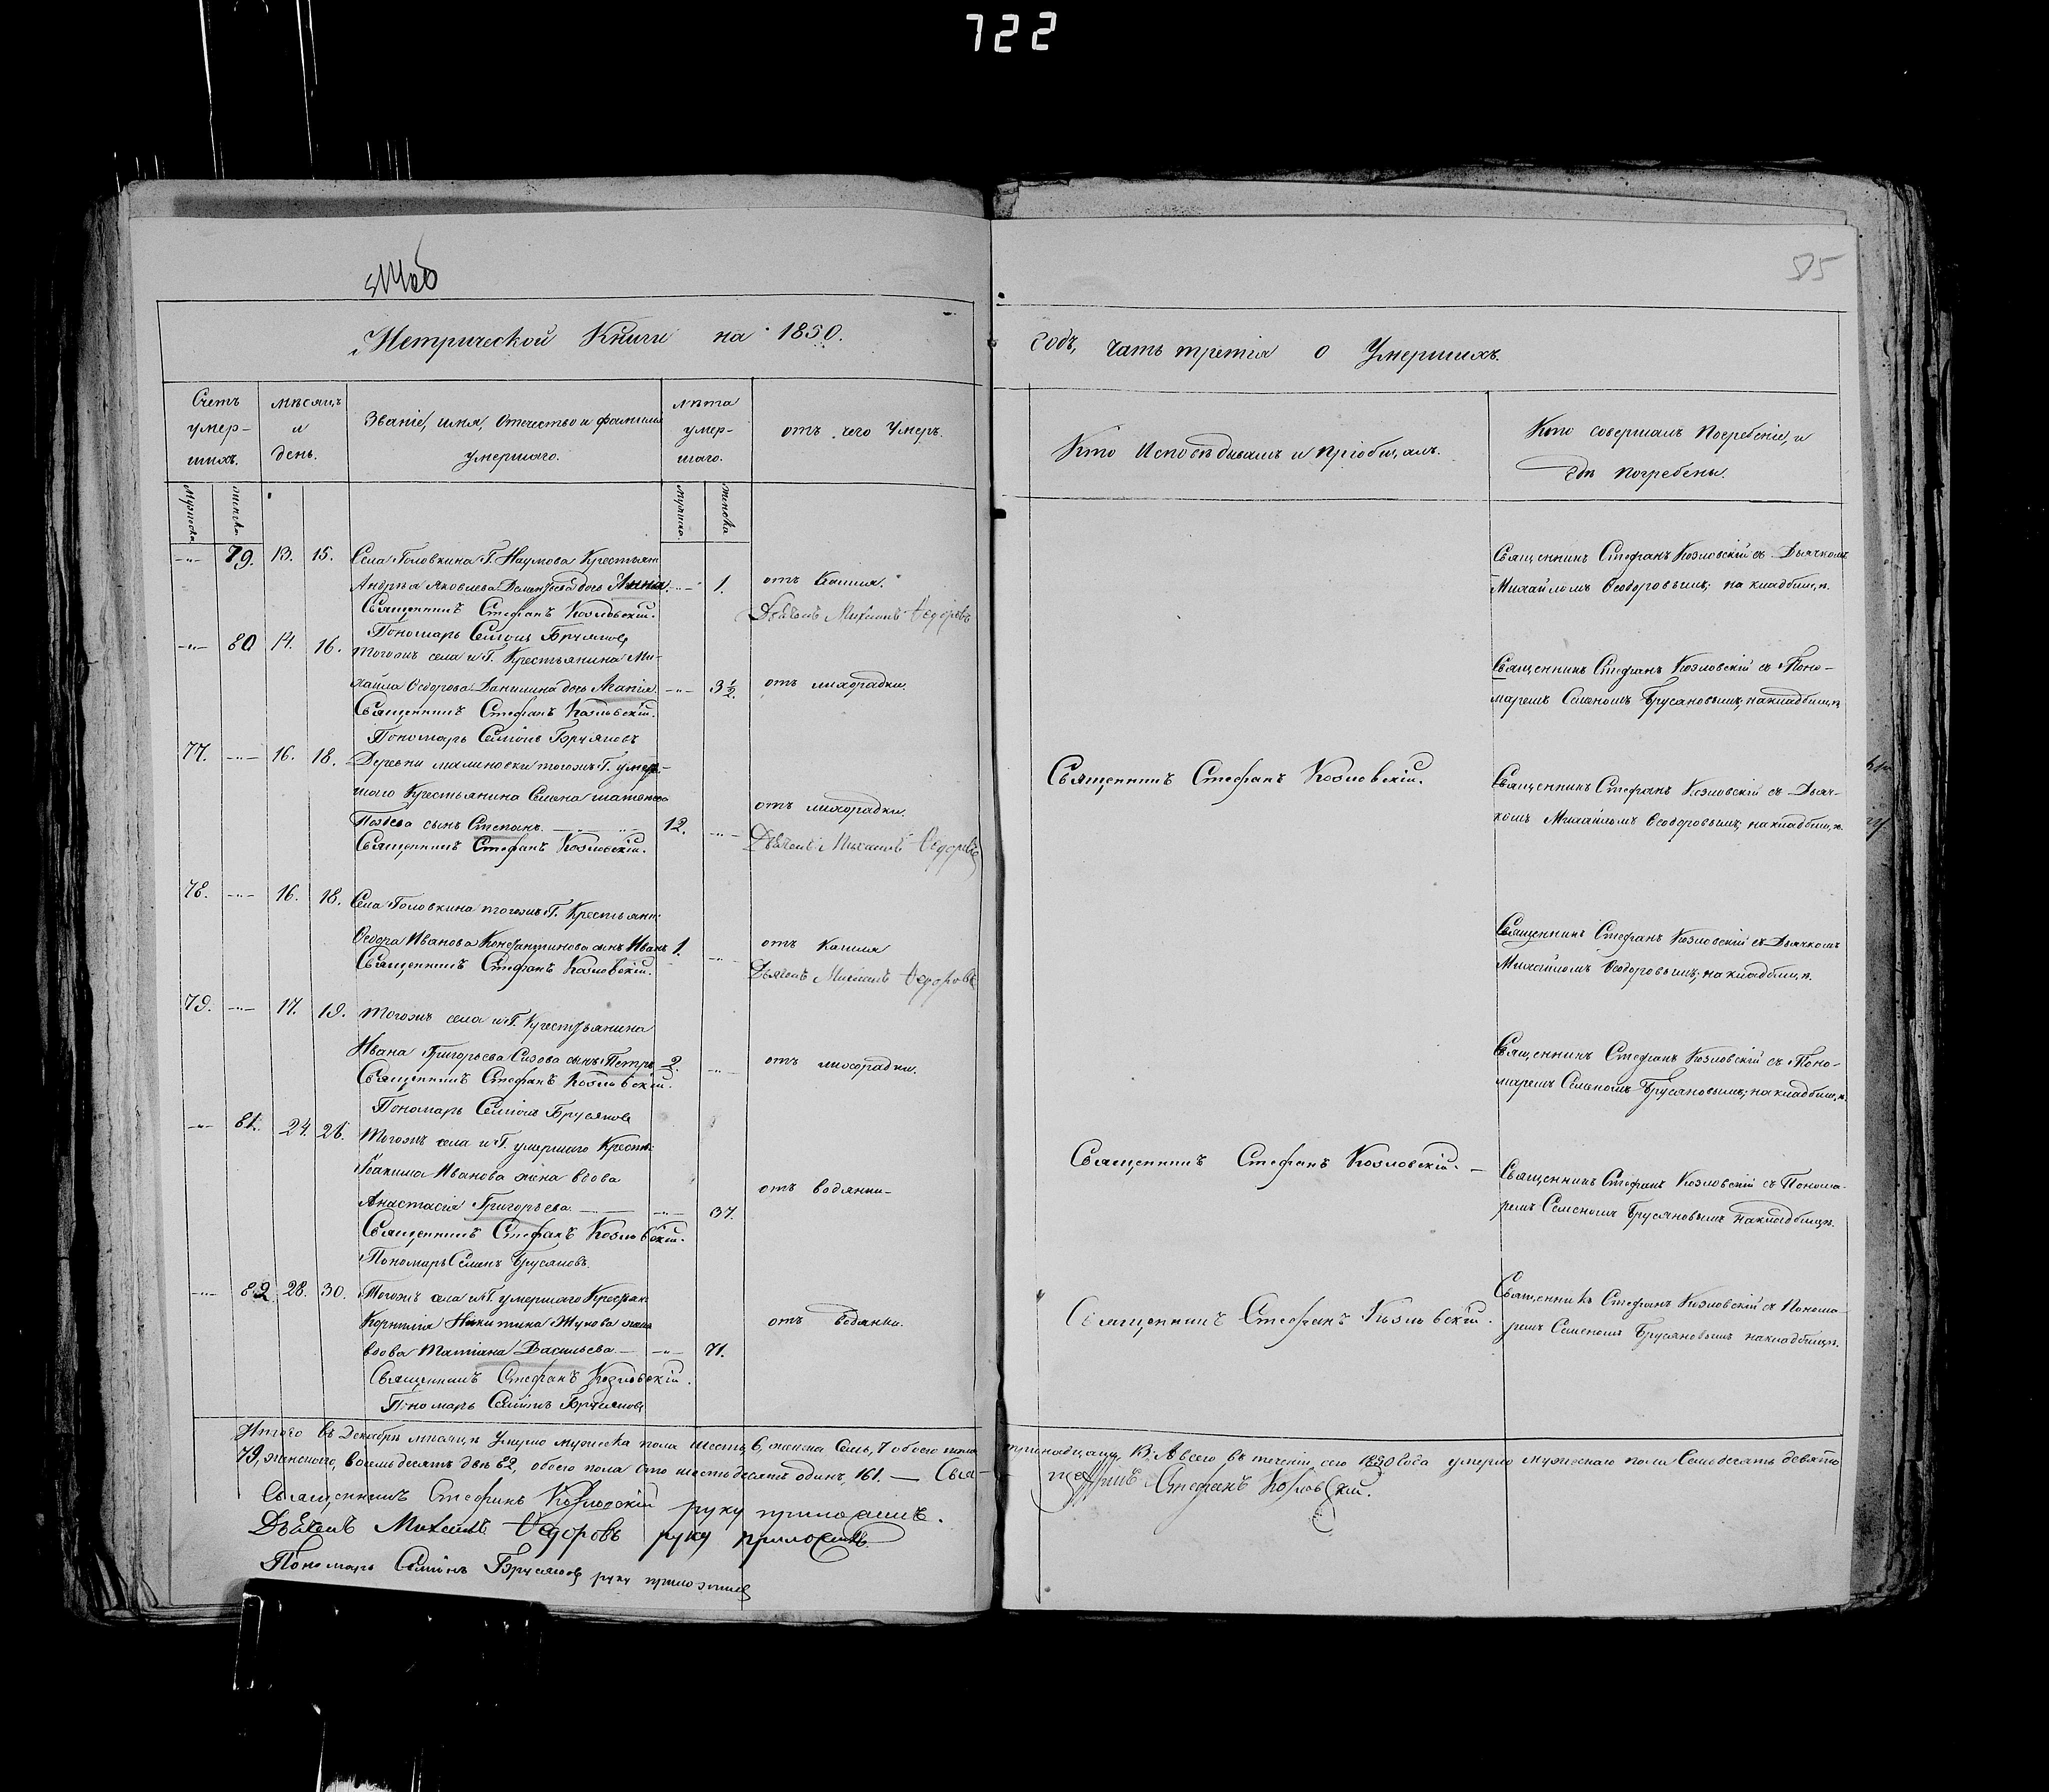 722
85
Метрической Книги на 1850.
Годъ, часть третія о Умершихъ.
Счетъ умер-
шихъ.
мѣсяцъ
и
день.
Званіе, имя, отчество и фамилія
умершаго.
лѣта
умер-
шаго.
отъ чего Умеръ.
Кто Исповѣдывалъ и пріобщалъ.
Кто совершалъ Погребеніе, и
гдѣ погребены.
Мужеска
женска
мужеска
женска
79. 13. 15. Села Головкина Г. Наумова Крестьян.
Андрея Яковлева дочь Анна 1. отъ Кашля.
Священникъ Стефанъ Козловскій.
Дьячекъ Михаилъ Ѳедоровъ
Пономарь Семіонъ Брусяновъ
Священникъ Стефанъ Козловскій съ Дьячкомъ
Михайломъ Ѳеодоровымъ; на кладбищѣ.
80 14. 16. Тогожъ села и Г. Крестьянина Ми-
хайла Ѳедорова Данилина дочь Агапія 3½. отъ лихорадки.
Священникъ Стефанъ Козловскій.
Пономарь Семіонъ Брусяновъ
Священникъ Стефанъ Козловскій съ Поно-
маремъ Семеномъ Брусяновымъ, на кладбищѣ
77. 16. 18. Деревни тогожъ Г. умер-
шаго Крестьянина Семена
сынъ Степанъ. 12. отъ лихорадки.
Священникъ Стефанъ Козловскій.
Дьячекъ Михаилъ Ѳедоровъ
Священникъ Стефанъ Козловскій.
Священникъ Стефанъ Козловскій съ Дьяч-
комъ Михайломъ Ѳеодоровымъ; на кладбищѣ.
78. 16. 18. Села Головкина тогожъ Г. Крестьян:
Ѳедора Иванова Константинова сынъ Иванъ 1. отъ кашля
Священникъ Стефанъ Козловскій.
Дьячекъ Михаилъ Ѳедоровъ
Священникъ Стефанъ Козловскій съ Дьячкомъ
Михайломъ Ѳеодоровымъ; на кладбищѣ.
79. 17. 19. Тогожъ села и Г. Крестьянина
Ивана Григорьева Сизова сынъ Петръ 2. отъ лихорадки.
Священникъ Стефанъ Козловскій.
Пономарь Семіонъ Брусяновъ
Священникъ Стефанъ Козловскій съ Поно-
маремъ Семеномъ Брусяновымъ; на кладбищѣ.
81. 24. 26. Тогожъ села и Г. умершаго Крестьян:
Іоакима Иванова жена вдова
Анастасія Григорьева. 37. отъ водянки
Священникъ Стефанъ Козловскій.
Пономарь Семенъ Брусяновъ.
Священникъ Стефанъ Козловскій.
Священникъ Стефанъ Козловскій съ Понома-
ремъ Семеномъ Брусяновымъ на кладбищѣ.
82 28. 30. Тогожъ села и Г. умершаго Крестьян:
Корнилія Никитина Жукова жена
вдова Татіана Васильева 71. отъ водянки.
Священникъ Стефанъ Козловскій.
Пономарь Семіонъ Брусяновъ
Священникъ Стефанъ Козловскій.
Священникъ Стефанъ Козловскій съ Понома-
ремъ Семеномъ Брусяновымъ на кладбищѣ.
Итого въ Декабрѣ мѣсяцѣ Умерло мужеска пола шесть, 6, женска Семь, 7 обоего пола тринадцать, 13. А всего въ теченіи сего 1850 Года умерло мужескаго пола Семьдесятъ девять
79, женскаго, восемьдесятъ двѣ 82, обоего пола сто шестьдесятъ одинъ, 161. — Свя-щенникъ Стефанъ Козловскій.
Священникъ Стефанъ Козловскій руку приложилъ.
Дьячекъ Михаилъ Ѳедоровъ руку приложилъ.
Пономарь Семіонъ Брусяновъ руку приложилъ